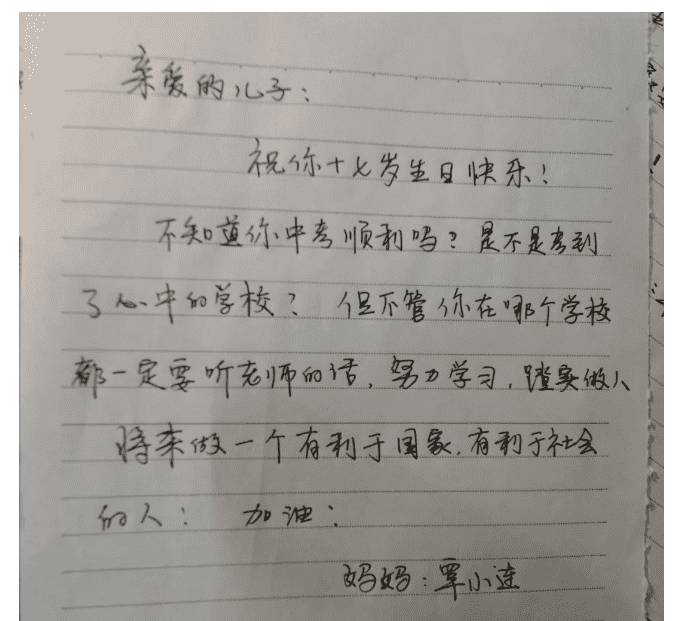 亲爱的儿子:
祝你十七岁生日快乐!
不知道你中考顺利吗?是不是考到
了心中的学校?但不管你在哪个学校
都一定要听老师的话,努力学习,踏实做人
将来做一个有利于国家,有利于社会
的人!加油!
妈妈:覃小连